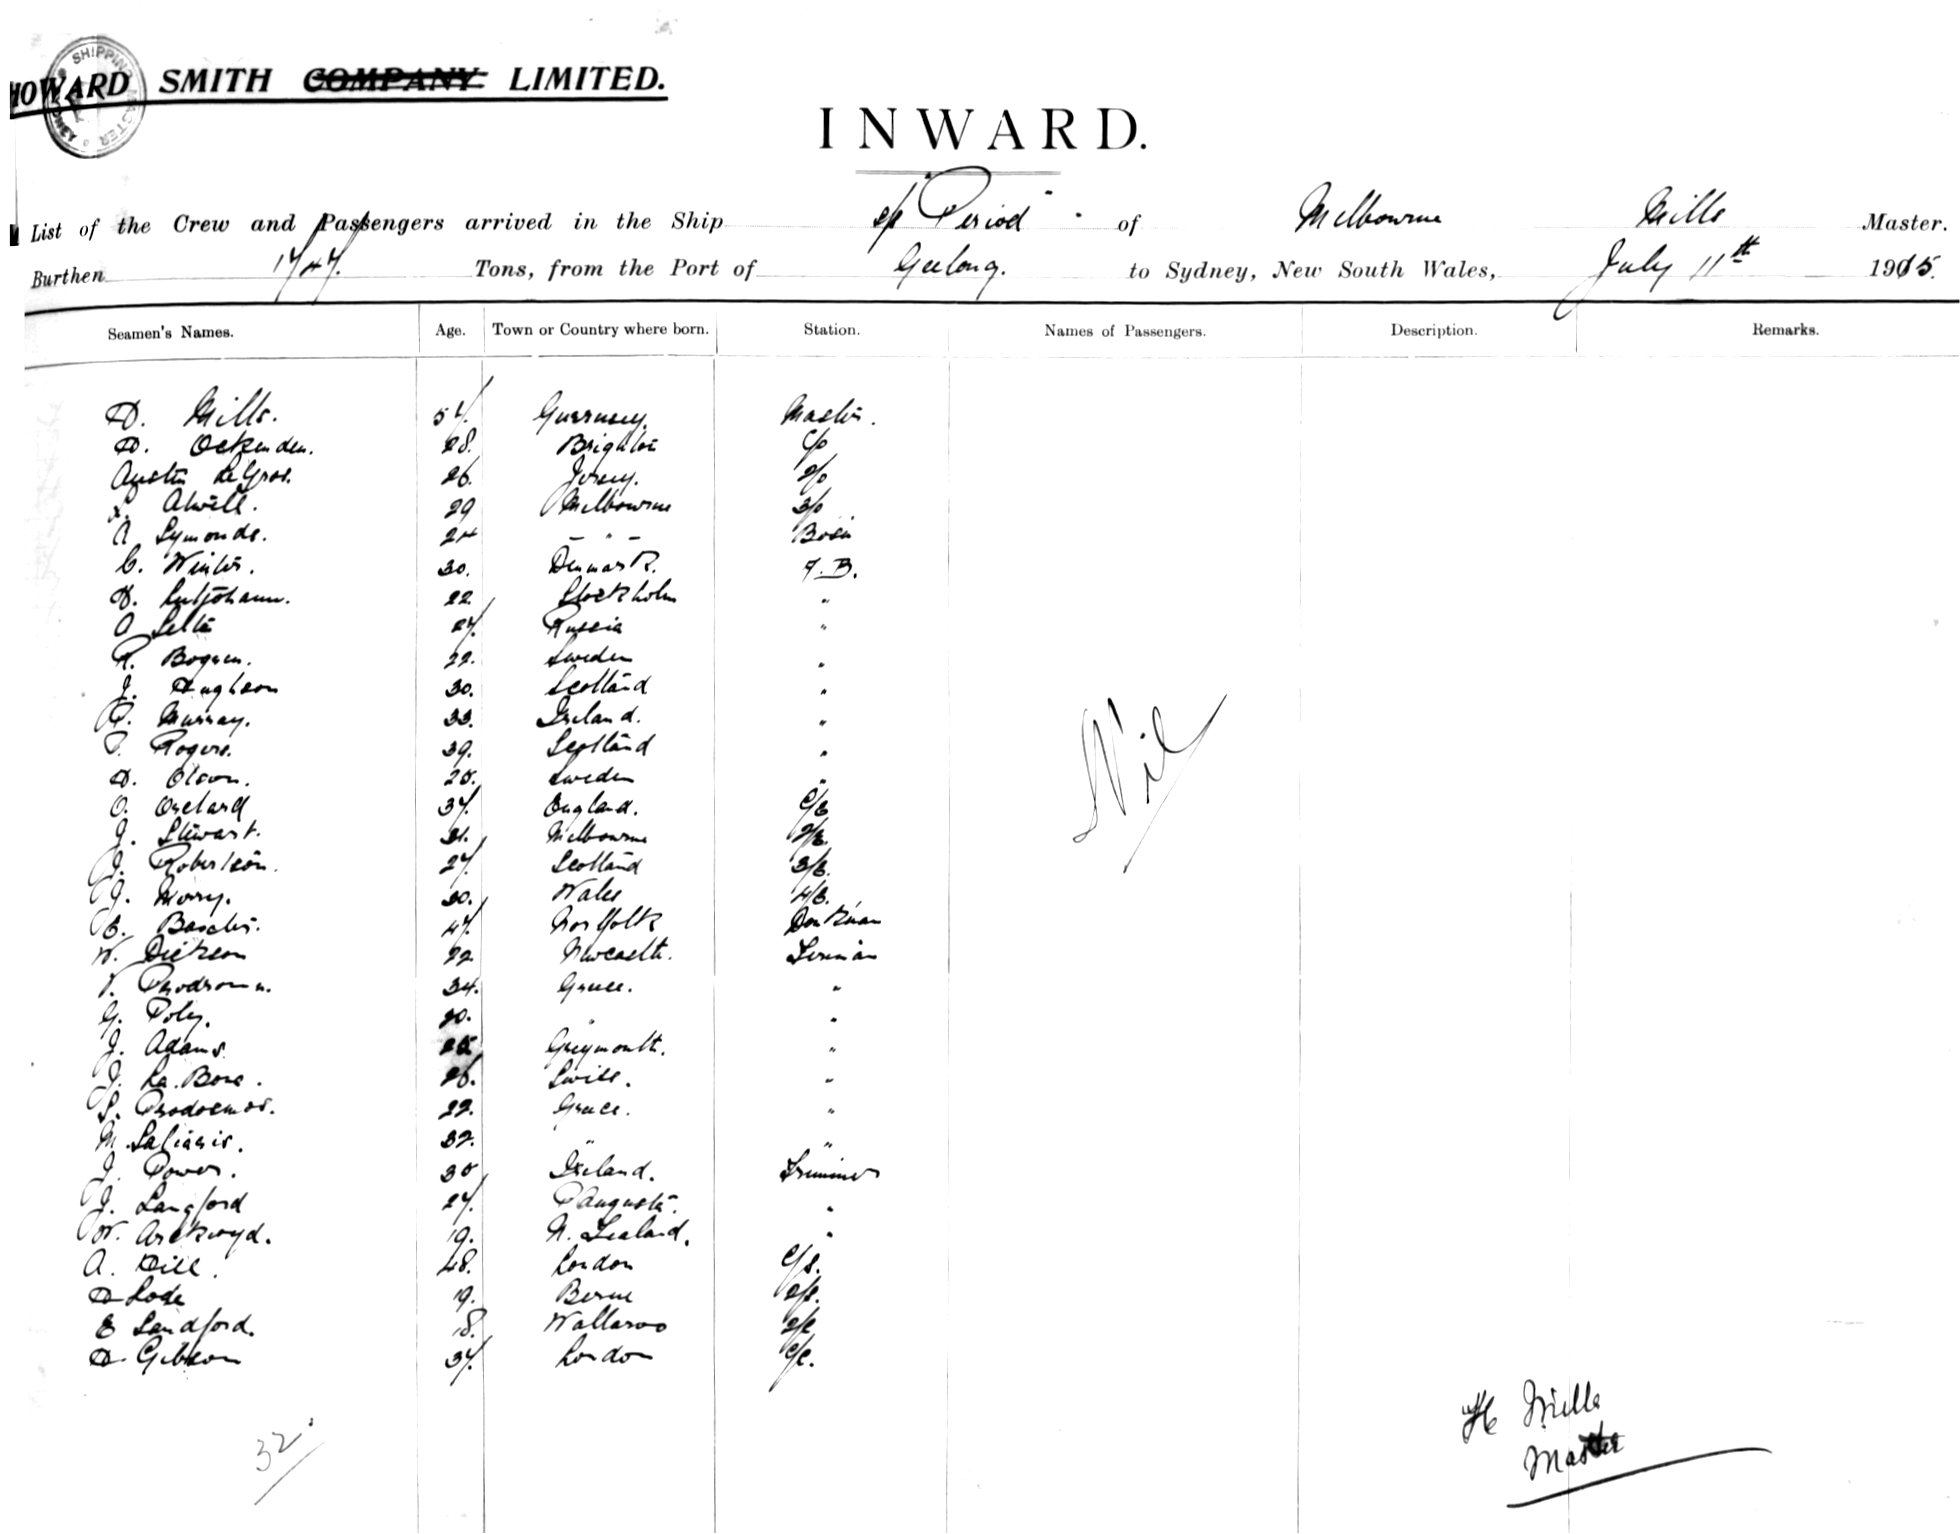 SHIPPING MASTER SYDNEY
HOWARD SMITH COMPANY LIMITED.
INWARD.
List of the Crew and Passengers arrived in the Ship s/s "Period" of Melbourne Mills Master.
Burthen 1747 Tons, from the Port of Geelong. to Sydney, New South Wales, July 11th 1915.
Seamen's Names. Age. Town or Country where born. Station. Names of Passengers. Description. Remarks.
Mills. 57. Guernsey. Master.
D. Ockenden. 28. Brighton C/o
Austin LeGros. 26. Jersey. 2/o
Atwill. 29 Melbourne 3/o
A Symonds. 24 - " - Bosn
C. Winter. 30. Denmark. A.B.
Lutjohann. 22 Stockholm "
O 27. Russia "
R. Bogren. 22. Sweden "
J. Hughson 30. Scotland "
P. Murray. 33. Ireland. "
P. Rogers. 39. Scotland "
O. Olson. Sweden "
O. Orchard 37. England. C/E
J. Stewart. 31. Melbourne 2/E.
J. Robertson. 27. Scotland 3/E.
J. Morry. 30. Wales 4/E.
B. 47. Norfolk Donkman
W. Dickson 22 Newcastle. Fireman
34. Greece. "
G. Poly. 20. " "
J. Adams Greymouth. "
J. La. Bone. 26. Swiss. "
22. Greece. "
M. Saliaris. 32. " "
J. Power. 30 Ireland. Trimmer
J. Langford 27. P Augusta. "
W. Arckwyd. 19. N. Zealand. "
A. Hill. 48. London C/S.
Lode 19. Berne 2/S.
E Sandford. 18. Wallaroo 2/C
D. Gibson 37. London C/C.
Nil
32.
H Mills
Master